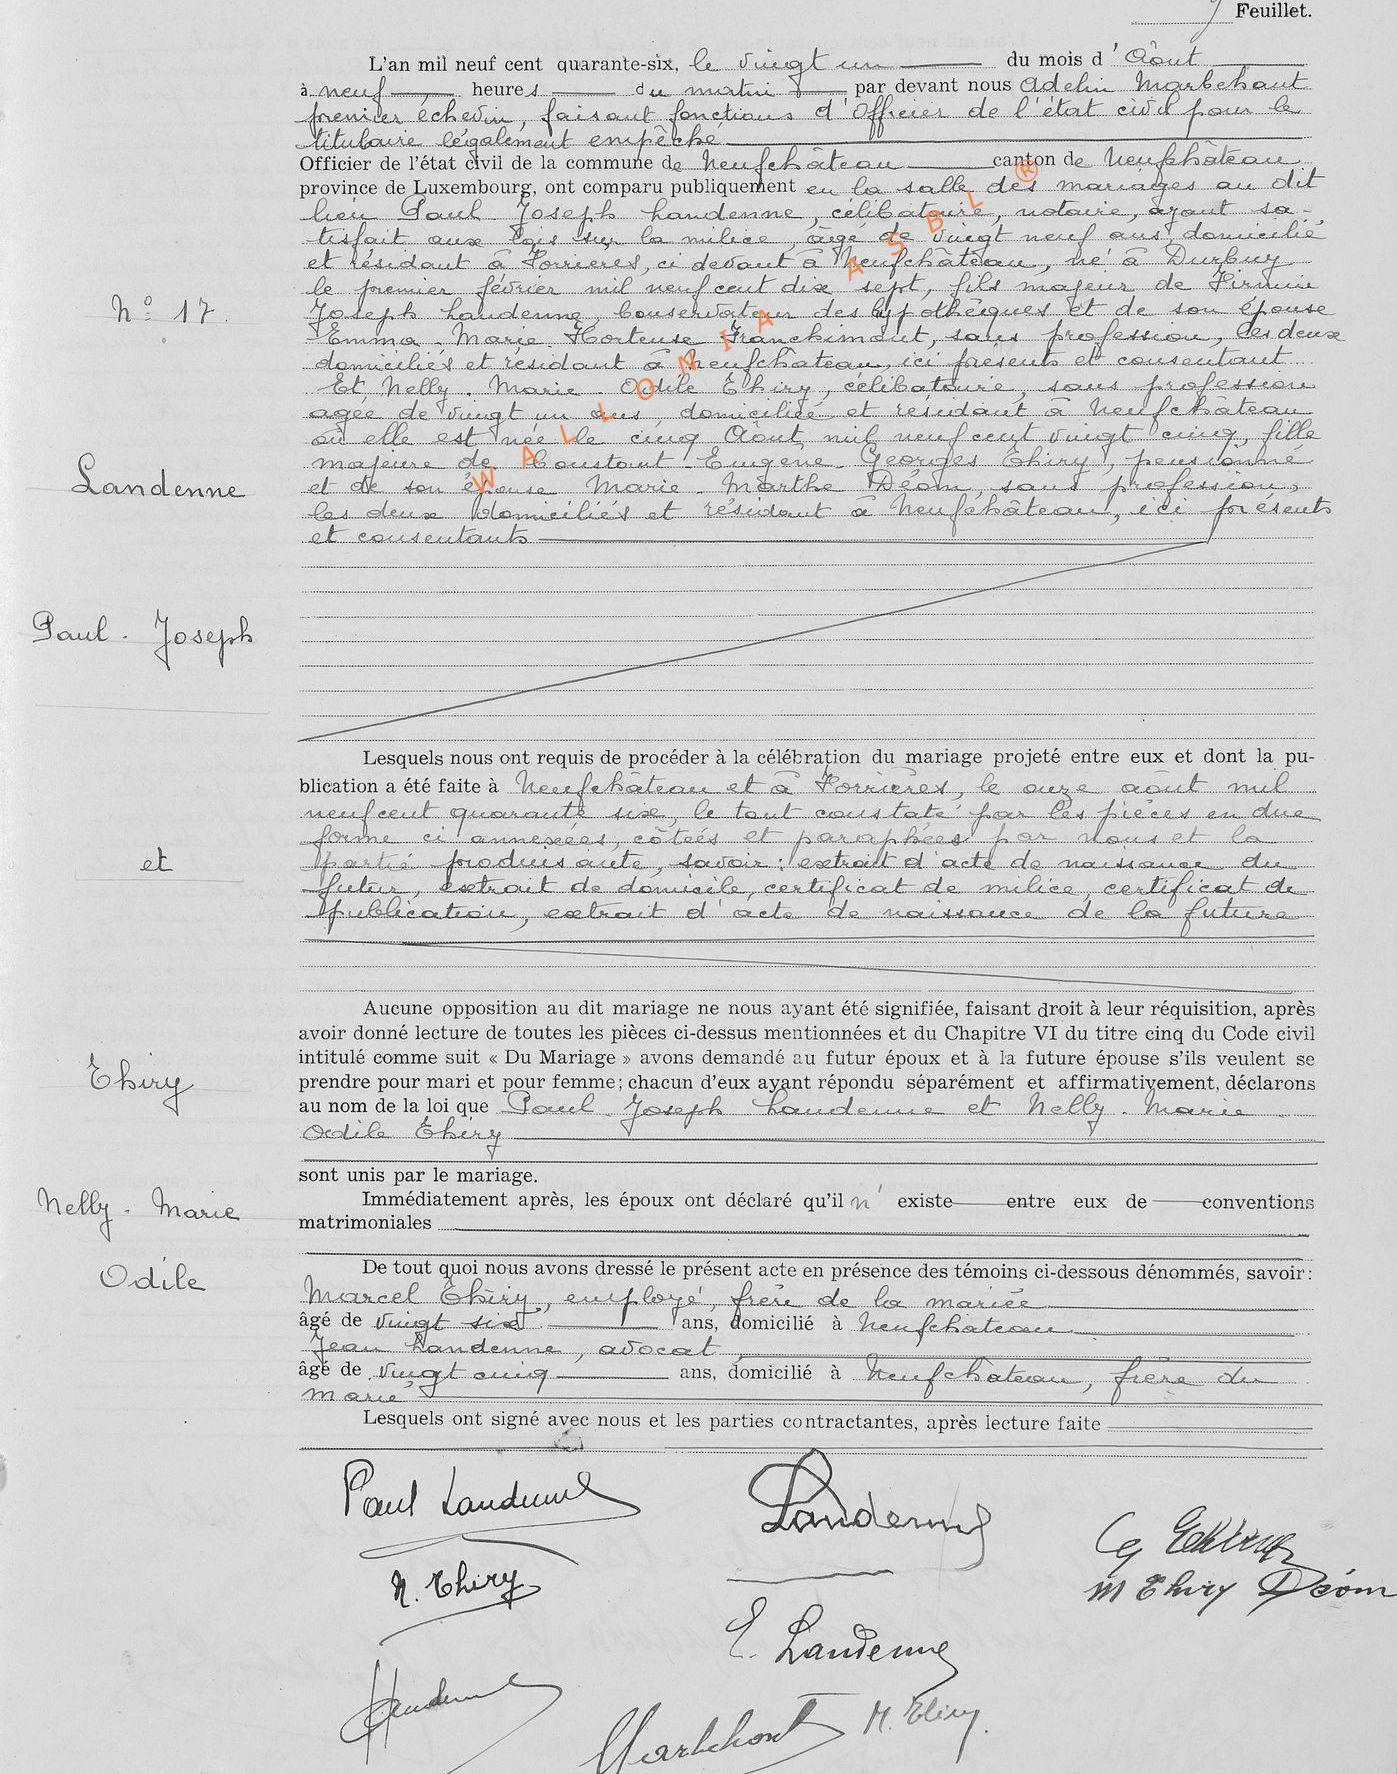 9 Feuillet.
L'an mil neuf cent quarante-six, le vingt un du mois d'Août
à neuf heures du matin par devant nous Adelin Marbehant
premier échevin, faisant fonctions d'Officier de l'état civil pour le
titulaire légalement empêché
Officier de l'état civil de la commune de Neufchâteau canton de Neufchâteau
province de Luxembourg, ont comparu publiquement en la salle des mariages au dit
lieu Paul Joseph Landenne, célibataire, notaire, ayant sa-
tisfait aux lois sur la milice, âgé de vingt neuf ans, domicilié
et résidant à Forrières, ci devant à Neufchâteau, né à Durbuy
le premier février mil neuf cent dix sept, fils majeur de Firmin
N° 17.
Joseph Landenne, Conservateur des hypothèques et de son épouse
Emma - Marie - Hortense Franchimont, sans profession, les deux
domiciliés et résidant à Neufchâteau, ici présents et consentant
Et Nelly - Marie - Odile Thiry, célibataire, sans profession
agée de vingt un ans, domiciliée et résidant à Neufchâteau
où elle est née le cinq Août mil neuf cent vingt cinq, fille
majeure de Constant - Eugène - Georges Thiry, pensionné
Landenne
et de son épouse Marie - Marthe Déom, sans profession,
les deux domiciliés et résidant à Neufchâteau, ici présents
et consentants
Paul - Joseph
Lesquels nous ont requis de procéder à la célébration du mariage projeté entre eux et dont la pu-
blication a été faite à Neufchâteau et à Forrières, le onze août mil
neuf cent quarante six, le tout constaté par les pièces en due
forme ci annexées, côtées et paraphées par nous et la
partie produisante, savoir: extrait d'acte de naissance du
et
futur, extrait de domicile, certificat de milice, certificat de
publication, extrait d'acte de naissance de la future
Aucune opposition au dit mariage ne nous ayant été signifiée, faisant droit à leur réquisition, après
avoir donné lecture de toutes les pièces ci-dessus mentionnées et du Chapitre VI du titre cinq du Code civil
intitulé comme suit « Du Mariage » avons demandé au futur époux et à la future épouse s'ils veulent se
prendre pour mari et pour femme; chacun d'eux ayant répondu séparément et affirmativement, déclarons
Thiry
au nom de la loi que Paul - Joseph Landenne et Nelly - Marie
Odile Thiry
sont unis par le mariage.
Immédiatement après, les époux ont déclaré qu'il n'existe entre eux de conventions
Nelly - Marie
matrimoniales
De tout quoi nous avons dressé le présent acte en présence des témoins ci-dessous dénommés, savoir:
Odile
Marcel Thiry, employé, frère de la mariée
âgé de vingt six ans, domicilié à Neufchateau
Jean Landenne, avocat
âgé de vingt cinq ans, domicilié à Neufchâteau, frère du
marié
Lesquels ont signé avec nous et les parties contractantes, après lecture faite
Paul Landenne
Landenne
Thiry
N. Thiry
M Thiry Déom
E. Landenne
Landenne
Marbehant
M. Thiry.
WALLONIA ASBL ®